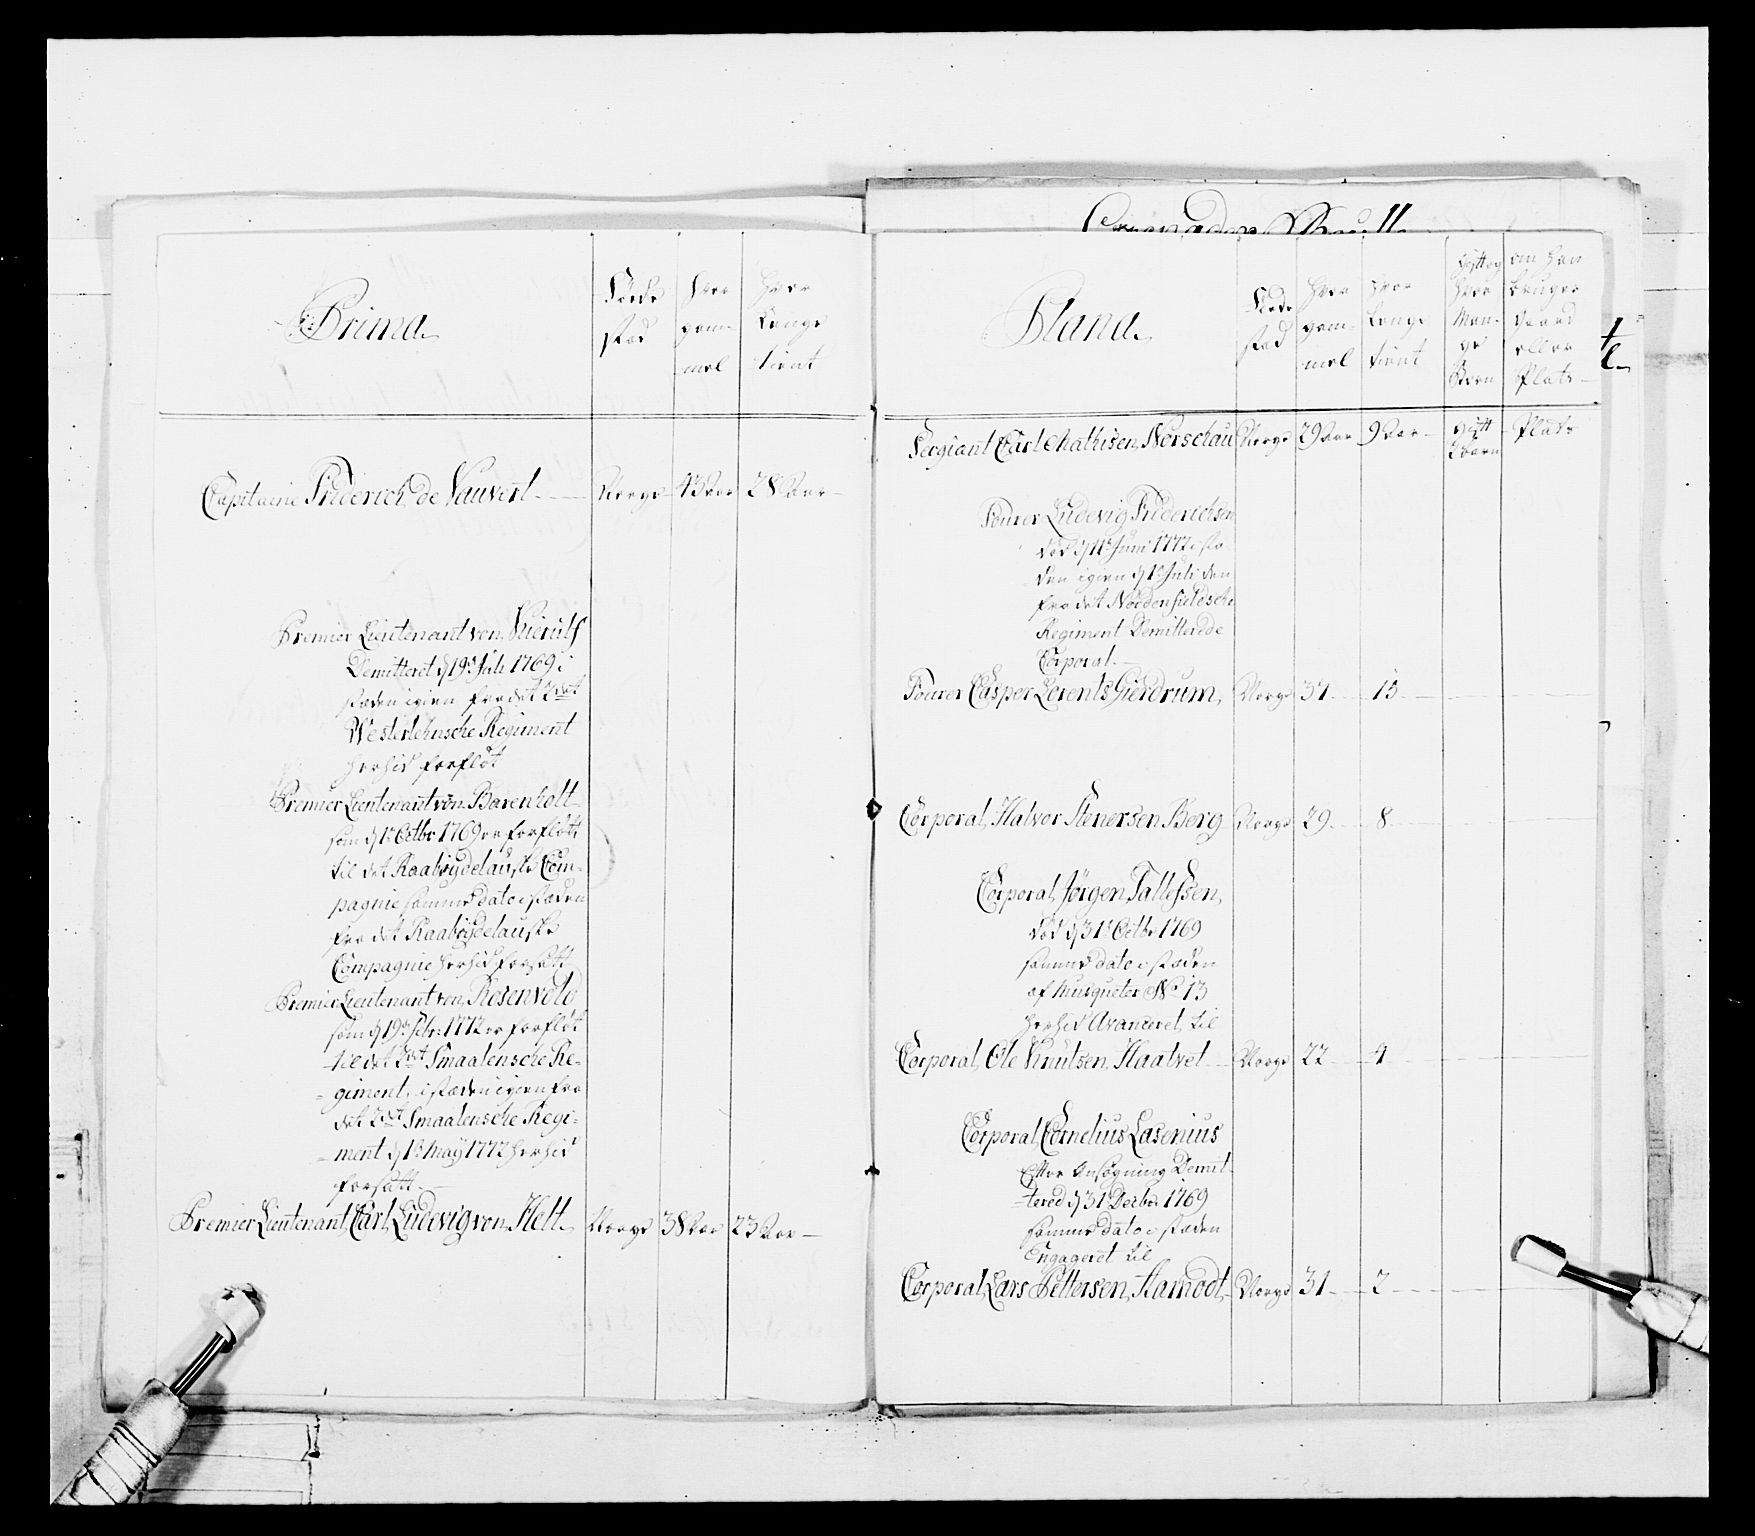 Prima
Føde
stæd
hvor
gam-
mel
hvor
længe
tient
Capitaine Friderich de Sauvert
Norge
43 Aar
28 Aar
Premier Lieutenant von
Demitteret d 19de Juli 1769 i
stæden igien fra det 2det
Westerlehnsche Regiment
herhid forfløt
Premier Lieutenant von Barenholt
som d 1te Octbr 1769 er forfløtt
til det Raabÿdelauske Com-
pagnie samme dato i stæden
fra det Raabÿdelauske
Compagnie herhid forsatt
Premier Lieutenant von Rosenvold
som d 19de Febr: 1772 er forfløt
til det 2det Smaalensche Re-
giment, i stæden igien fra
det 2det Smaalensche Regi-
ment d 1te Maÿ 1772 herhid
forsatt.
Premier Lieutenant Carl Ludevig von Helt
Norge
38 Aar
23 Aar
Plana
Fødested
hvor
gam-
mel
hvor
længe
tient
gift og
hvor
Man-
ge
Børn
om han
bruger
Gaard
eller
Plads
Sergiant Carl Mathisen Nerschau
Norge
29 Aar
9 Aar
gift
2 børn
Plads
Fourer Ludevig Friderichsen
død d 11te Juni 1772 i stæ-
den igien d 1te Juli den
fra det Nordenfieldsche
Regiment Demitterede
Corporal
Fourer Casper Lorents Gierdrum
Norge
34
15
Corporal Halvor Stenersen Berg
Norge
29
8
Corporal Jørgen Tallefsen
død d 31te Octbr 1769
samme dato i stæden
af Musqueter No 13
herhid Avanceret til
Corporal Ole Knutsen Haatvet
Norge
22
4
Corporal Cornelius Lasenius
Efter Ansøgning Demit-
tered d 31 Decbr 1769
samme dato i stæden
Engageret til
Corporal Lars Pettersen Aamodt
Norge
31
2